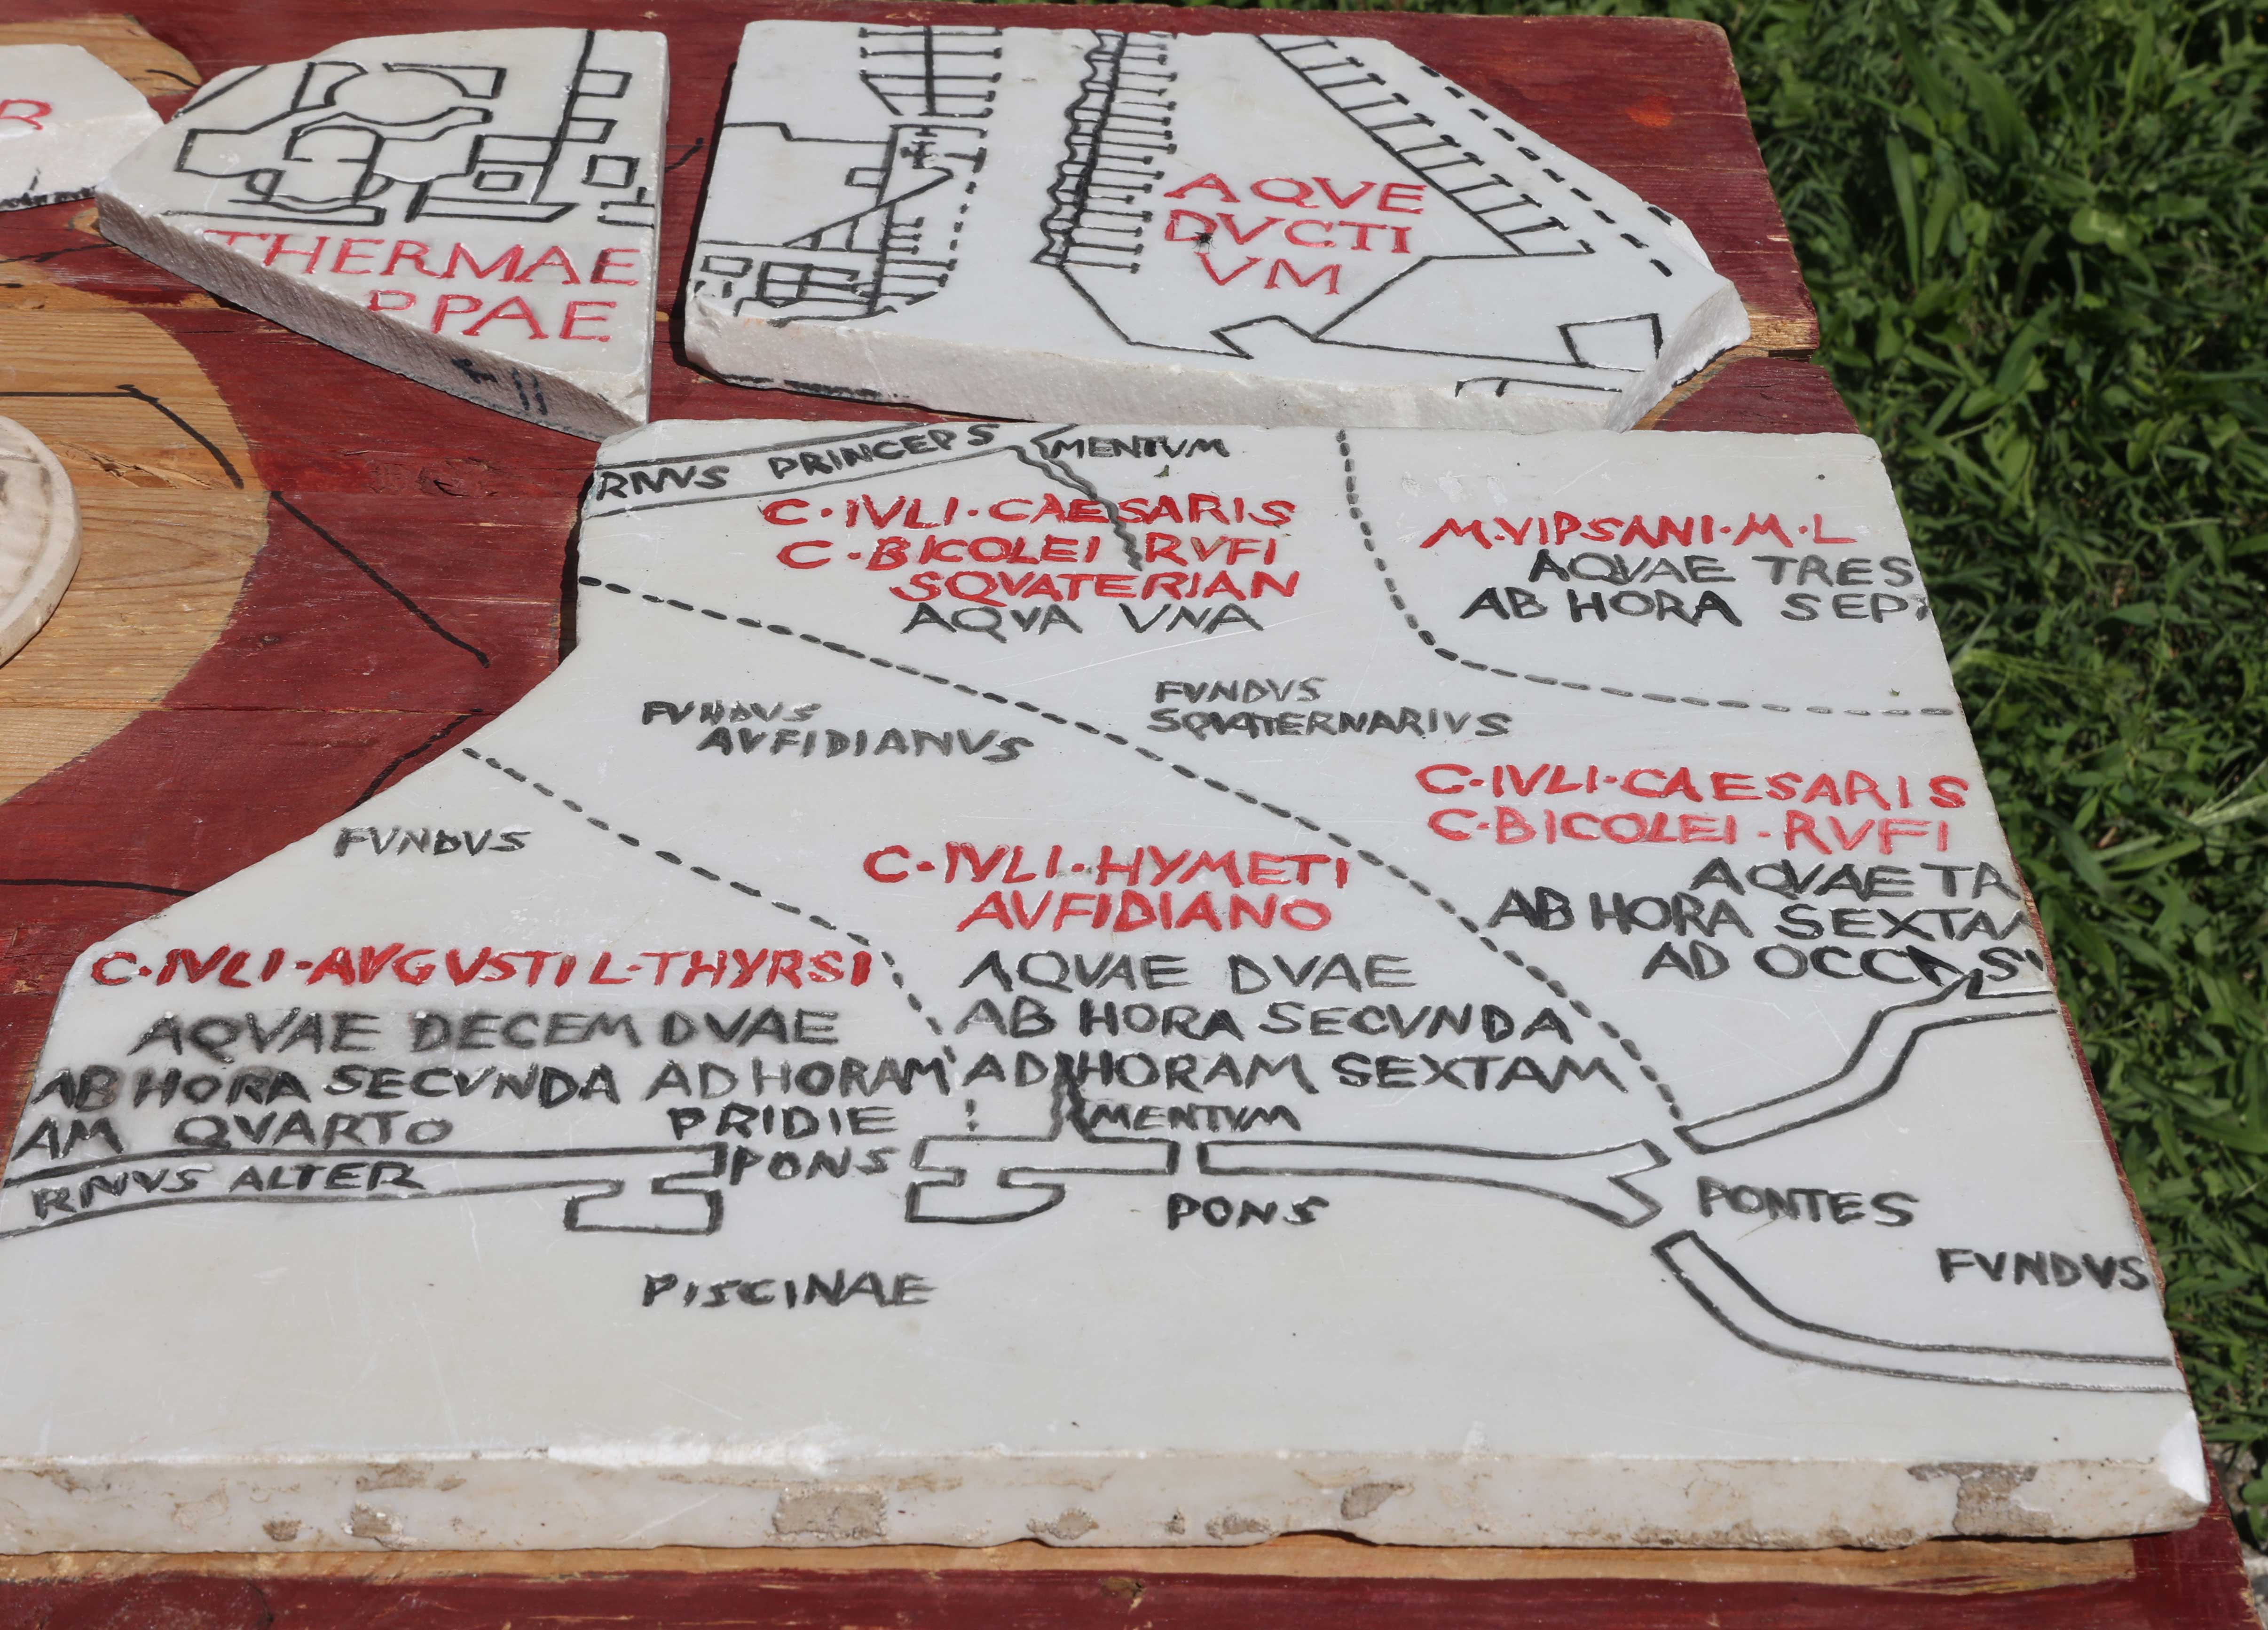 R
THERMAE
PPAE
AQVE
DVCTI
VM
RIVVS PRINCEPS
MENTVM
C·IVLI·CAESARIS
C·BICOLEI RVFI
SQVATERIAN
AQVA VNA
M·VIPSANI·M·L
AQVAE TRES
AB HORA SEPT
FVNDVS
AVFIDIANVS
FVNDVS
SQVATERNARIVS
C·IVLI·CAESARIS
C·BICOLEI·RVFI
AQVAE TR
AB HORA SEXTAM
AD OCCAS
FVNDVS
C·IVLI·HYMETI
AVFIDIANO
AQVAE DVAE
AB HORA SECVNDA
AD HORAM SEXTAM
C·IVLI·AVGVSTI L·THYRSI
AQVAE DECEM DVAE
AB HORA SECVNDA AD HORAM
AM QVARTO
PRIDIE
MENTVM
RIVVS ALTER
PONS
PONS
PONTES
FVNDVS
PISCINAE